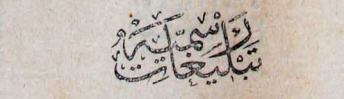 تبليغات رسميه